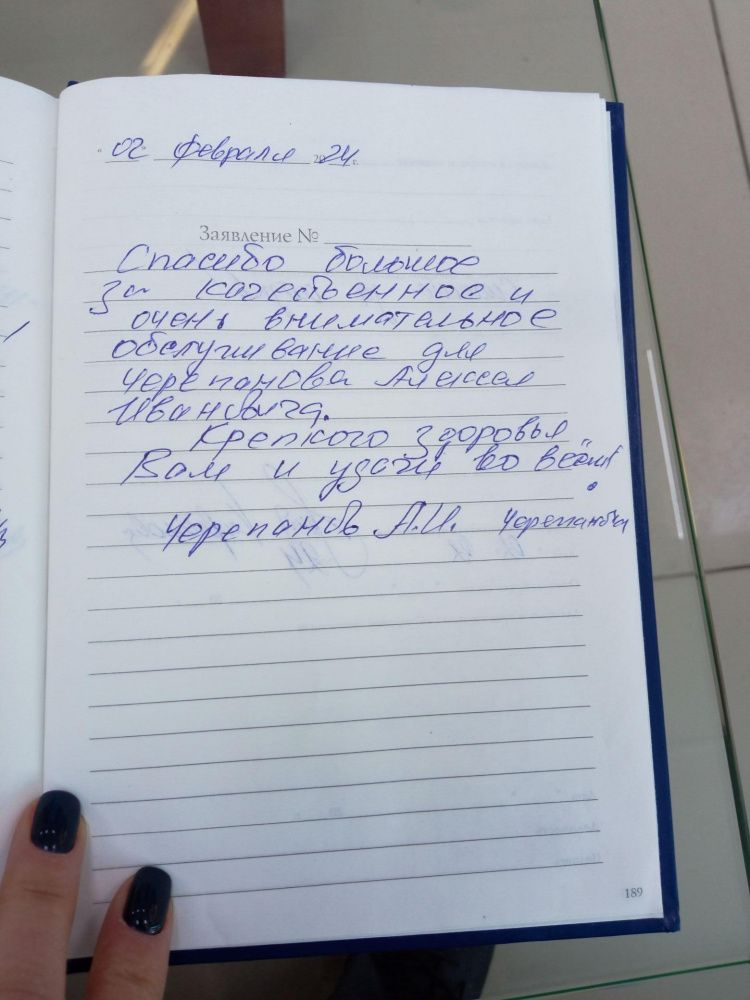 " 02 " февраля 2024 г.
Заявление №
Спасибо большое
за качественное и
очень внимательное
обслуживание для
Черепанова Алексея
Ивановича.
Крепкого здоровья
Вам и удачи во всём!
Черепановъ А.И. Черепановъ
189